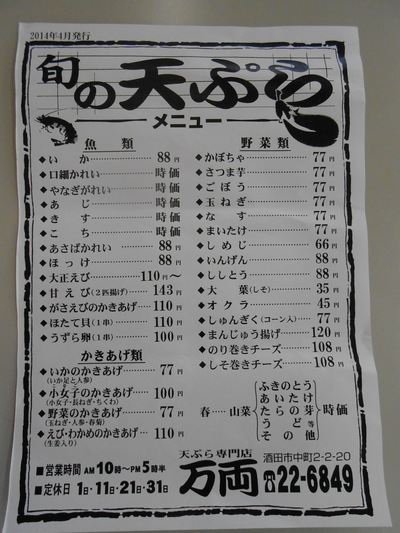 2014年4月発行
旬の天ぷら
メニュー
魚類
◆いか…………88円
◆口細かれい…………時価
◆やなぎがれい…………時価
◆あじ…………時価
◆きす…………時価
◆こち…………時価
◆あさばかれい…………88円
◆ほっけ…………88円
◆大正えび…………110円〜
◆甘えび(2匹揚げ)……143円
◆がさえびのかきあげ……110円
◆ほたて貝(1串)…………110円
◆うずら卵(1串)…………100円
かきあげ類
◆いかのかきあげ…………77円
(いか足と人参)
◆小女子のかきあげ………100円
(小女子・長ねぎ・ちくわ)
◆野菜のかきあげ…………77円
(玉ねぎ・人参・春菊)
◆えび・わかめのかきあげ…110円
(生姜入り)
野菜類
◆かぼちゃ…………77円
◆さつま芋…………77円
◆ごぼう…………77円
◆玉ねぎ…………77円
◆なす…………77円
◆まいたけ…………77円
◆しめじ…………66円
◆いんげん…………88円
◆ししとう…………88円
◆大葉(しそ)…………35円
◆オクラ…………45円
◆しゅんぎく(コーン入)……77円
◆まんじゅう揚げ………120円
◆のり巻きチーズ………108円
◆しそ巻きチーズ………108円
春……山菜
ふきのとう
あいたけ
たらの芽
うど等
その他
時価
■営業時間 AM10時〜PM5時半
■定休日 1日・11日・21日・31日
天ぷら専門店
万両
酒田市中町2-2-20
☎22-6849